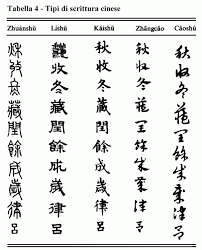 Tabella 4 - Tipi di scrittura cinese
Zhuànshū Lìshū Kǎishū Zhāngcǎo Cǎoshū
秋 秋 秋 秋
收 收 收 收 收
冬 冬 冬 冬 冬
藏 藏 藏 藏 藏
閏 閏 閏 閏 閏
餘 餘 餘 餘 餘
成 成 成 成 成
歲 歲 歲 歲 歲
律 律 律 律 律
呂 呂 呂 呂 呂